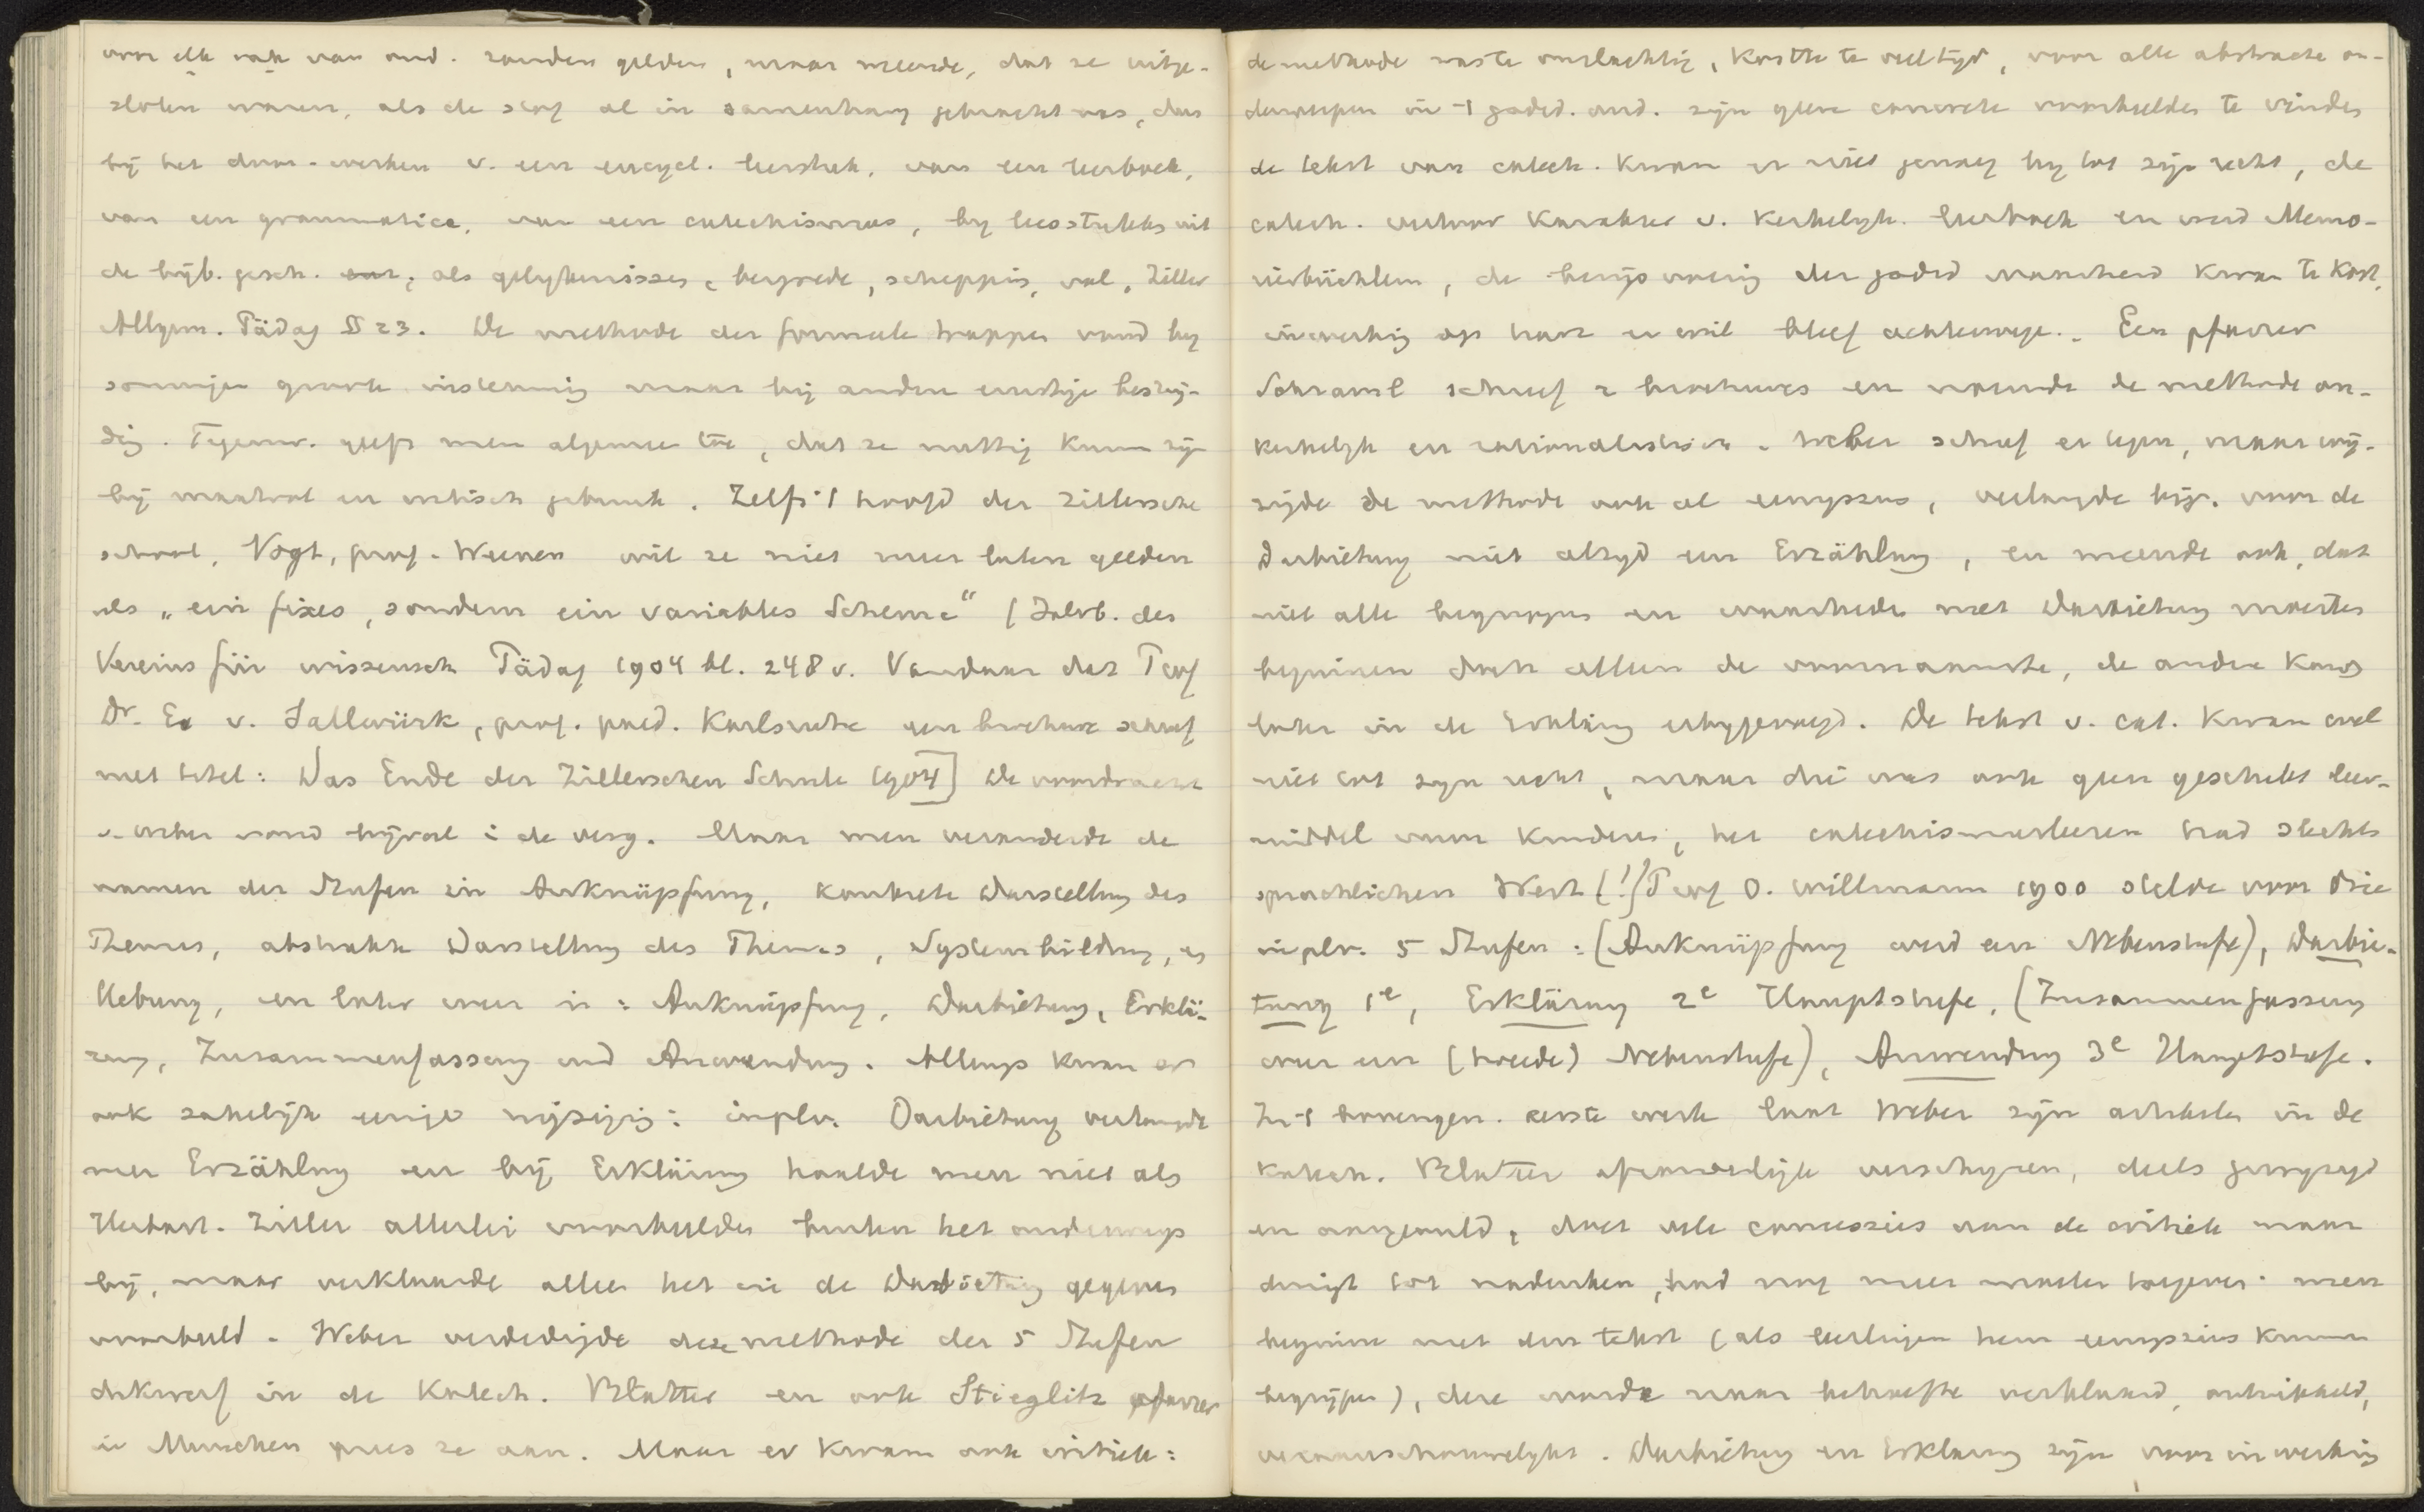 voor elk vak van ond. zouden gelden, maar meende, dat ze uitge-
sloten waren, als de stof al in samenhang gebracht was, dus
bij het door-werken v. een encycl. leerstuk, van een leerboek,
van een grammatica, van een catechismus, bij leesstukken uit
de bijb. gesch. als gelykenissen, bergrede, schepping, val, Ziller
Allgem. Pädag § 23. De methode der formeele trappen vond by
sommigen groote instemming maar bij andere ernstige bestrij-
ding. Tegenw. geeft men algemeen toe, dat ze nuttig kunn zijn
bij maatvol en critisch gebruik. Zelfs 't hoofd der Zillersche
school, Vogt, prof. Weenen wil ze niet meer laten gelden
als „ein fixes, sondern ein variables Schema" (Jahrb. des
Vereins für wissensch Pädag 1904 bl. 248 v. Vandaar dat Prof
Dr. E. v. Sallwürk, prof. paed. Karlsruhe een brochure schreef
met titel: Das Ende der Zillerschen Schule 1904] De voordracht
v. Weber vond bijval i de verg. Maar men veranderde de
namen der Stufen in Anknüpfung, konkrete Darstellung des
Themas, abstrakte Darstellung des Themas, Systembildung, en
Uebung, en later weer in: Anknüpfung, Darbietung, Erklä-
rung, Zusammenfassung und Anwendung. Allengs kwam er
ook zakelijk eenige wijziging: inplv. Darbietung verlangde
men Erzählung en bij Erklärung haalde men niet als
Herbart-Ziller allerlei voorbeelden buiten het onderwerp
bij, maar verklaarde alleen het in de Darbietung gegeven
voorbeeld. Weber verdedigde deze methode der 5 Stufen
dikwerf in de Katech. Blätter en ook Stieglitz pfarrer
in Munchen prees ze aan. Maar er kwam ook critiek:
de methode was te omslachtig, kostte te veel tyd, voor alle abstracte on-
derwerpen in 't godsd. ond. zijn geen concrete voorbeelden te vinden
de tekst van catech. kwam er niet genoeg by tot zijn recht, de
catech. verloor karakter v. kerkelyk. leerboek en werd Memo-
rierbüchlein, de bewijsvoering der godsd waarheid kwam te kort,
inwerking op hart en wil bleef achterwege. Een pfarrer
Schraml schreef 2 brochures en noemde de methode on-
kerkelyk en rationalistisch. Weber schreef er tegen, maar wij-
zigde de methode ook al eenigszins, verlangde bijv. voor de
Darbietung niet altyd een Erzählung, en meende ook, dat
niet alle begrippen en waarheden met Darbietung moesten
beginnen doch alleen de voornaamste, de andere kwamen
later in de Erklärung erbygevoegd. De tekst v. cat. kwam wel
niet tot zyn recht, maar die was ook geen geschikt leer-
middel voor kinderen, het catechismusleeren had slechts
sprachlichen Wert (!) Prof O. Willmann 1900 stelde voor drie
inplv. 5 Stufen: (Anknüpfung werd een Nebenstufe), Darbie-
tung 1e, Erklärung 2e Hauptstufe, (Zusammenfassung
weer een (tweede) Nebenstufe), Anwendung 3e Hauptstufe.
In 't bovengen. eerste werk laat Weber zijn artikelen in de
Katech. Blätter afzonderlijk verschijnen, deels gewijzigd
en aangevuld, doet vele concessies aan de critiek maar
dwingt tot nadenken, had nog meer moeten toegeven: men
beginne met den tekst (als leerlingen hem eenigszins kunnen
begrijpen), deze worde naar behoefte verklaard, ontwikkeld,
veraanschouwelykt. Darbietung en Erklärung zijn voor inwerking